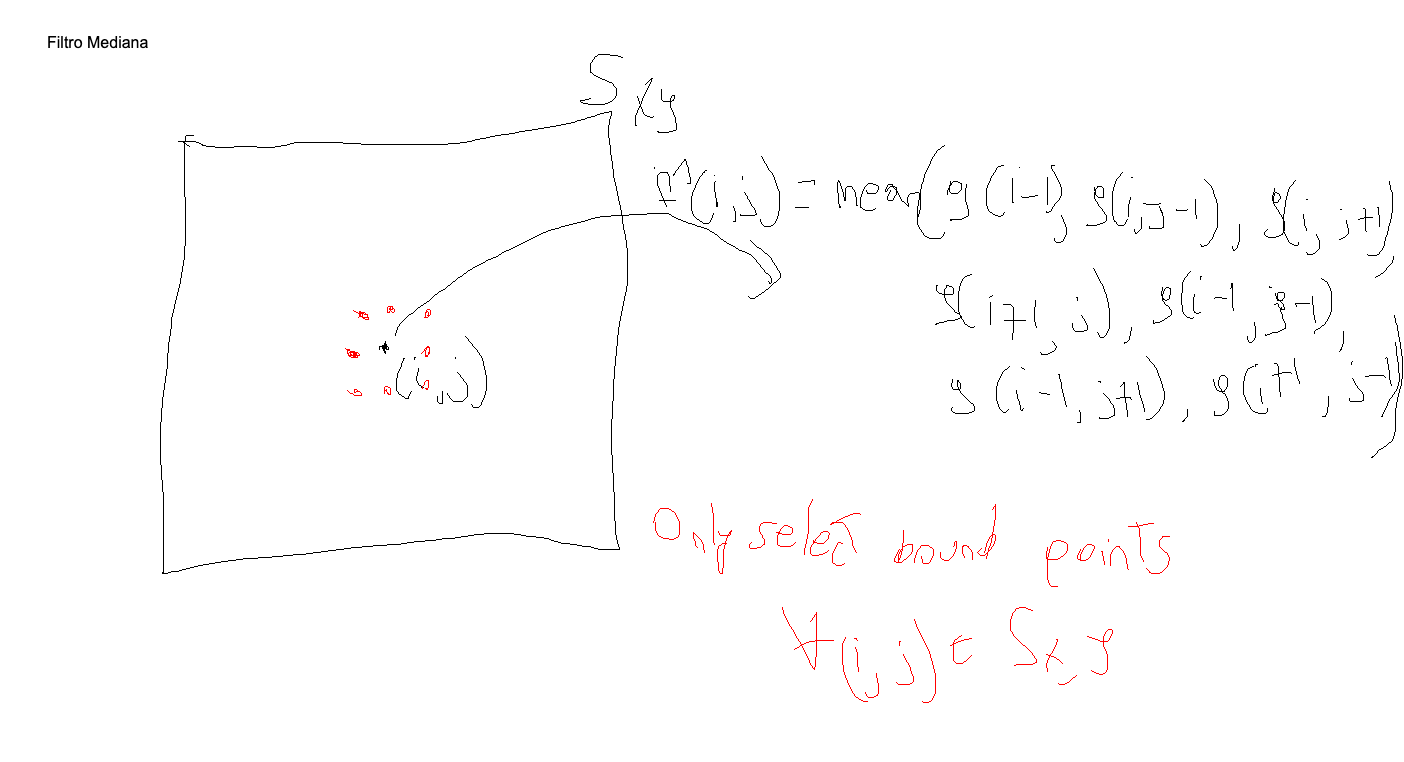 Filtro Mediana
S xy
f^(i,j) = mean(g(i-1), g(i,j-1), g(i, j+1),
g(i+1, j), g(i-1, j-1),
(i,j)
g(i-1, j+1), g(i+1, j-1))
Only select bound points
∀(i,j) ∈ Sx,y